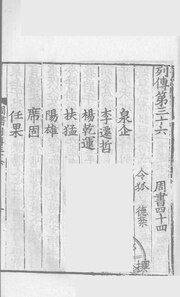 列傳第三十六 周書四十四
令狐 德棻 撰
泉企
李遷哲
楊乾運
扶猛
陽雄
席固
任果